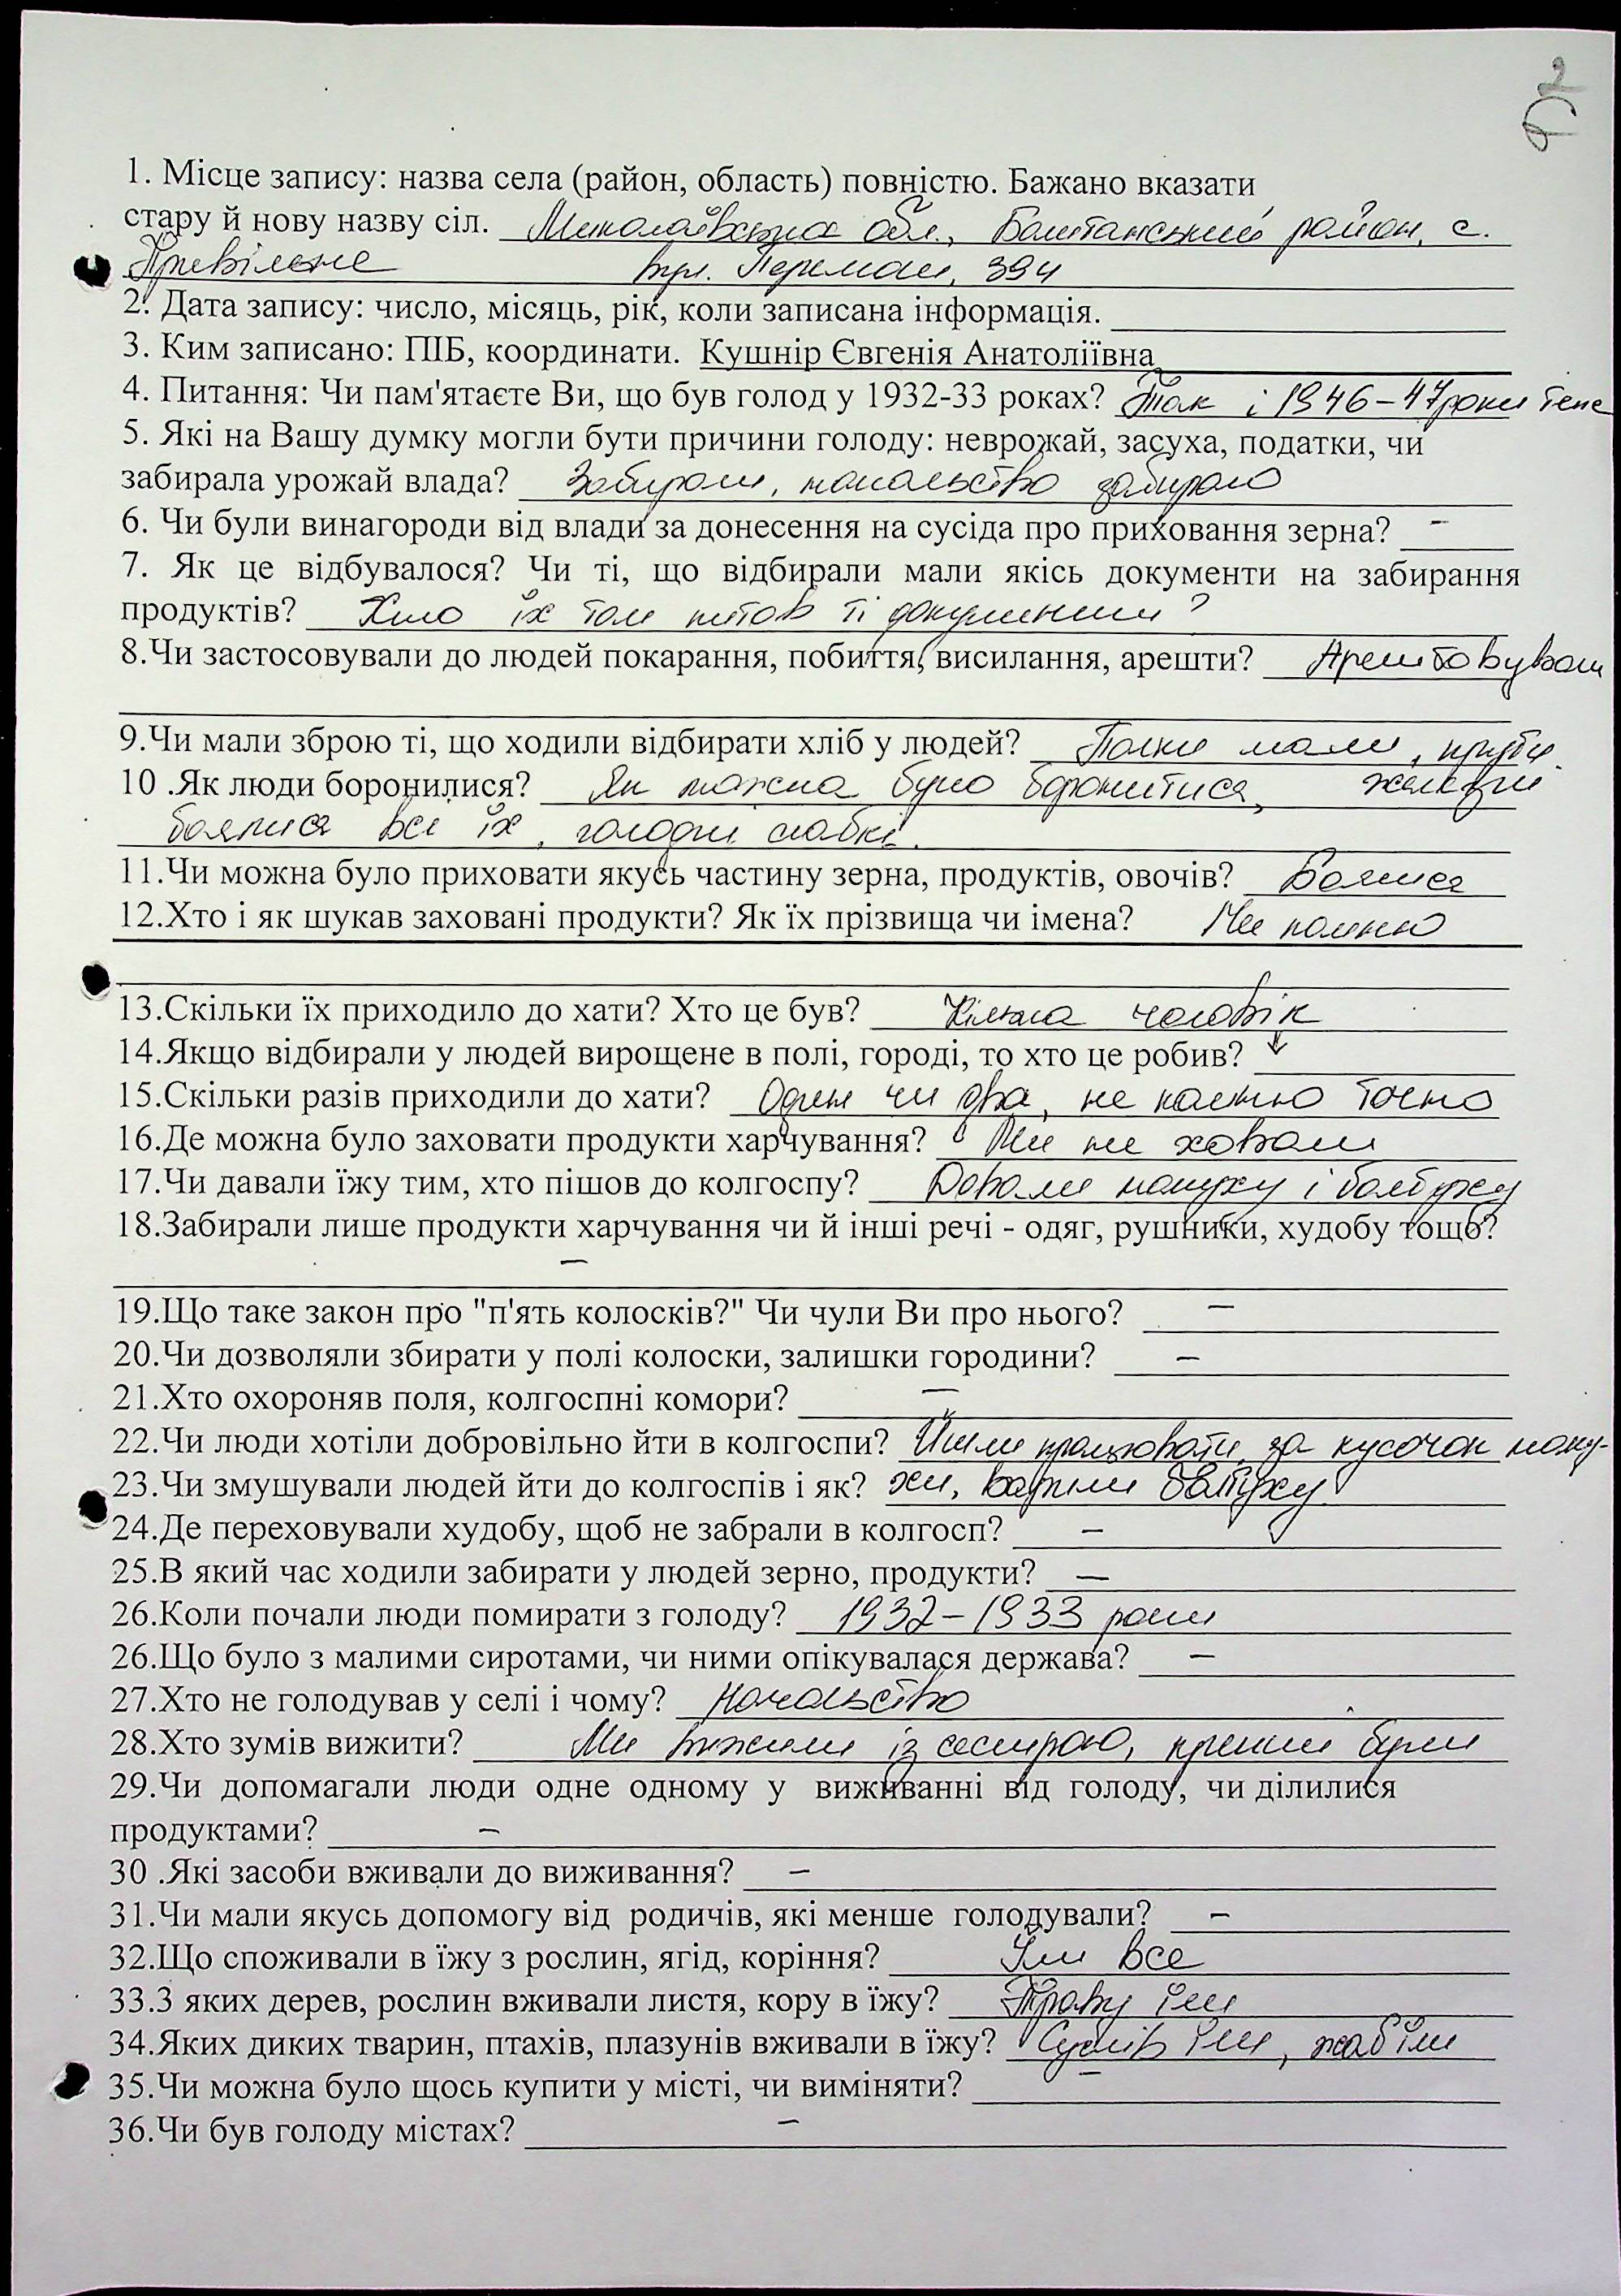 2
1. Місце запису: назва села (район, область) повністю. Бажано вказати
стару й нову назву сіл. Миколаївська обл., Баштанський район, с.
Привільне вул. Перемоги, 394
2. Дата запису: число, місяць, рік, коли записана інформація.
3. Ким записано: ПІБ, координати. Кушнір Євгенія Анатоліївна
4. Питання: Чи пам'ятаєте Ви, що був голод у 1932-33 роках? Так і 1946-47 роки теж
5. Які на Вашу думку могли бути причини голоду: неврожай, засуха, податки, чи
забирала урожай влада? Забирали, начальство забирало
6. Чи були винагороди від влади за донесення на сусіда про приховання зерна? -
7. Як це відбувалося? Чи ті, що відбирали мали якісь документи на забирання
продуктів? Хто їх там питав ті документи?
8.Чи застосовували до людей покарання, побиття, висилання, арешти? Арештовували
9.Чи мали зброю ті, що ходили відбирати хліб у людей? Палки мали, прути
10 .Як люди боронилися? Як можна було боронитися, желєзні
боялися всі їх, голодні слабкі.
11.Чи можна було приховати якусь частину зерна, продуктів, овочів? Боялися
12.Хто і як шукав заховані продукти? Як їх прізвища чи імена? Не помню
13.Скільки їх приходило до хати? Хто це був? Кілька чоловік
14.Якщо відбирали у людей вирощене в полі, городі, то хто це робив?
15.Скільки разів приходили до хати? Один чи два, не помню точно
16.Де можна було заховати продукти харчування? Ми не ховали
17.Чи давали їжу тим, хто пішов до колгоспу? Давали макуху і балтуху
18.Забирали лише продукти харчування чи й інші речі - одяг, рушники, худобу тощо?
-
19.Що таке закон про "п'ять колосків?" Чи чули Ви про нього? -
20.Чи дозволяли збирати у полі колоски, залишки городини? -
21.Хто охороняв поля, колгоспні комори? -
22.Чи люди хотіли добровільно йти в колгоспи? Йшли працювати за кусочок маку-
23.Чи змушували людей йти до колгоспів і як? хи, варили балтуху
24.Де переховували худобу, щоб не забрали в колгосп? -
25.В який час ходили забирати у людей зерно, продукти? -
26.Коли почали люди помирати з голоду? 1932-1933 роки
26.Що було з малими сиротами, чи ними опікувалася держава? -
27.Хто не голодував у селі і чому? Начальство
28.Хто зумів вижити? Ми вижили із сестрою, крепкі були
29.Чи допомагали люди одне одному у виживанні від голоду, чи ділилися
продуктами? -
30 .Які засоби вживали до виживання? -
31.Чи мали якусь допомогу від родичів, які менше голодували? -
32.Що споживали в їжу з рослин, ягід, коріння? Їли все
33.З яких дерев, рослин вживали листя, кору в їжу? Траву їли
34.Яких диких тварин, птахів, плазунів вживали в їжу? Сусліків їли, жаб їли
35.Чи можна було щось купити у місті, чи виміняти? -
36.Чи був голоду містах? -